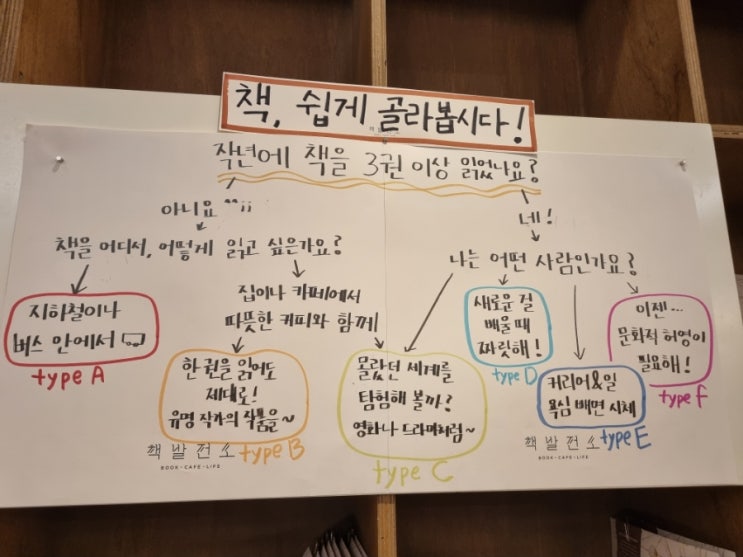 책, 쉽게 골라봅시다!
작년에 책을 3권 이상 읽었나요?
아니요 ^^;;
네!
책을 어디서, 어떻게 읽고 싶은가요?
나는 어떤 사람인가요?
지하철이나
버스 안에서
type A
집이나 카페에서
따뜻한 커피와 함께
한 권을 읽어도
제대로!
유명 작가의 작품을~
type B
몰랐던 세계를
탐험해 볼까?
영화나 드라마처럼~
type C
새로운 걸
배울 때
짜릿해!
type D
커리어&일
욕심 빼면 시체
type E
이젠...
문화적 허영이
필요해!
type F
책발전소
BOOK-CAFE-LIFE
책발전소
BOOK-CAFE-LIFE